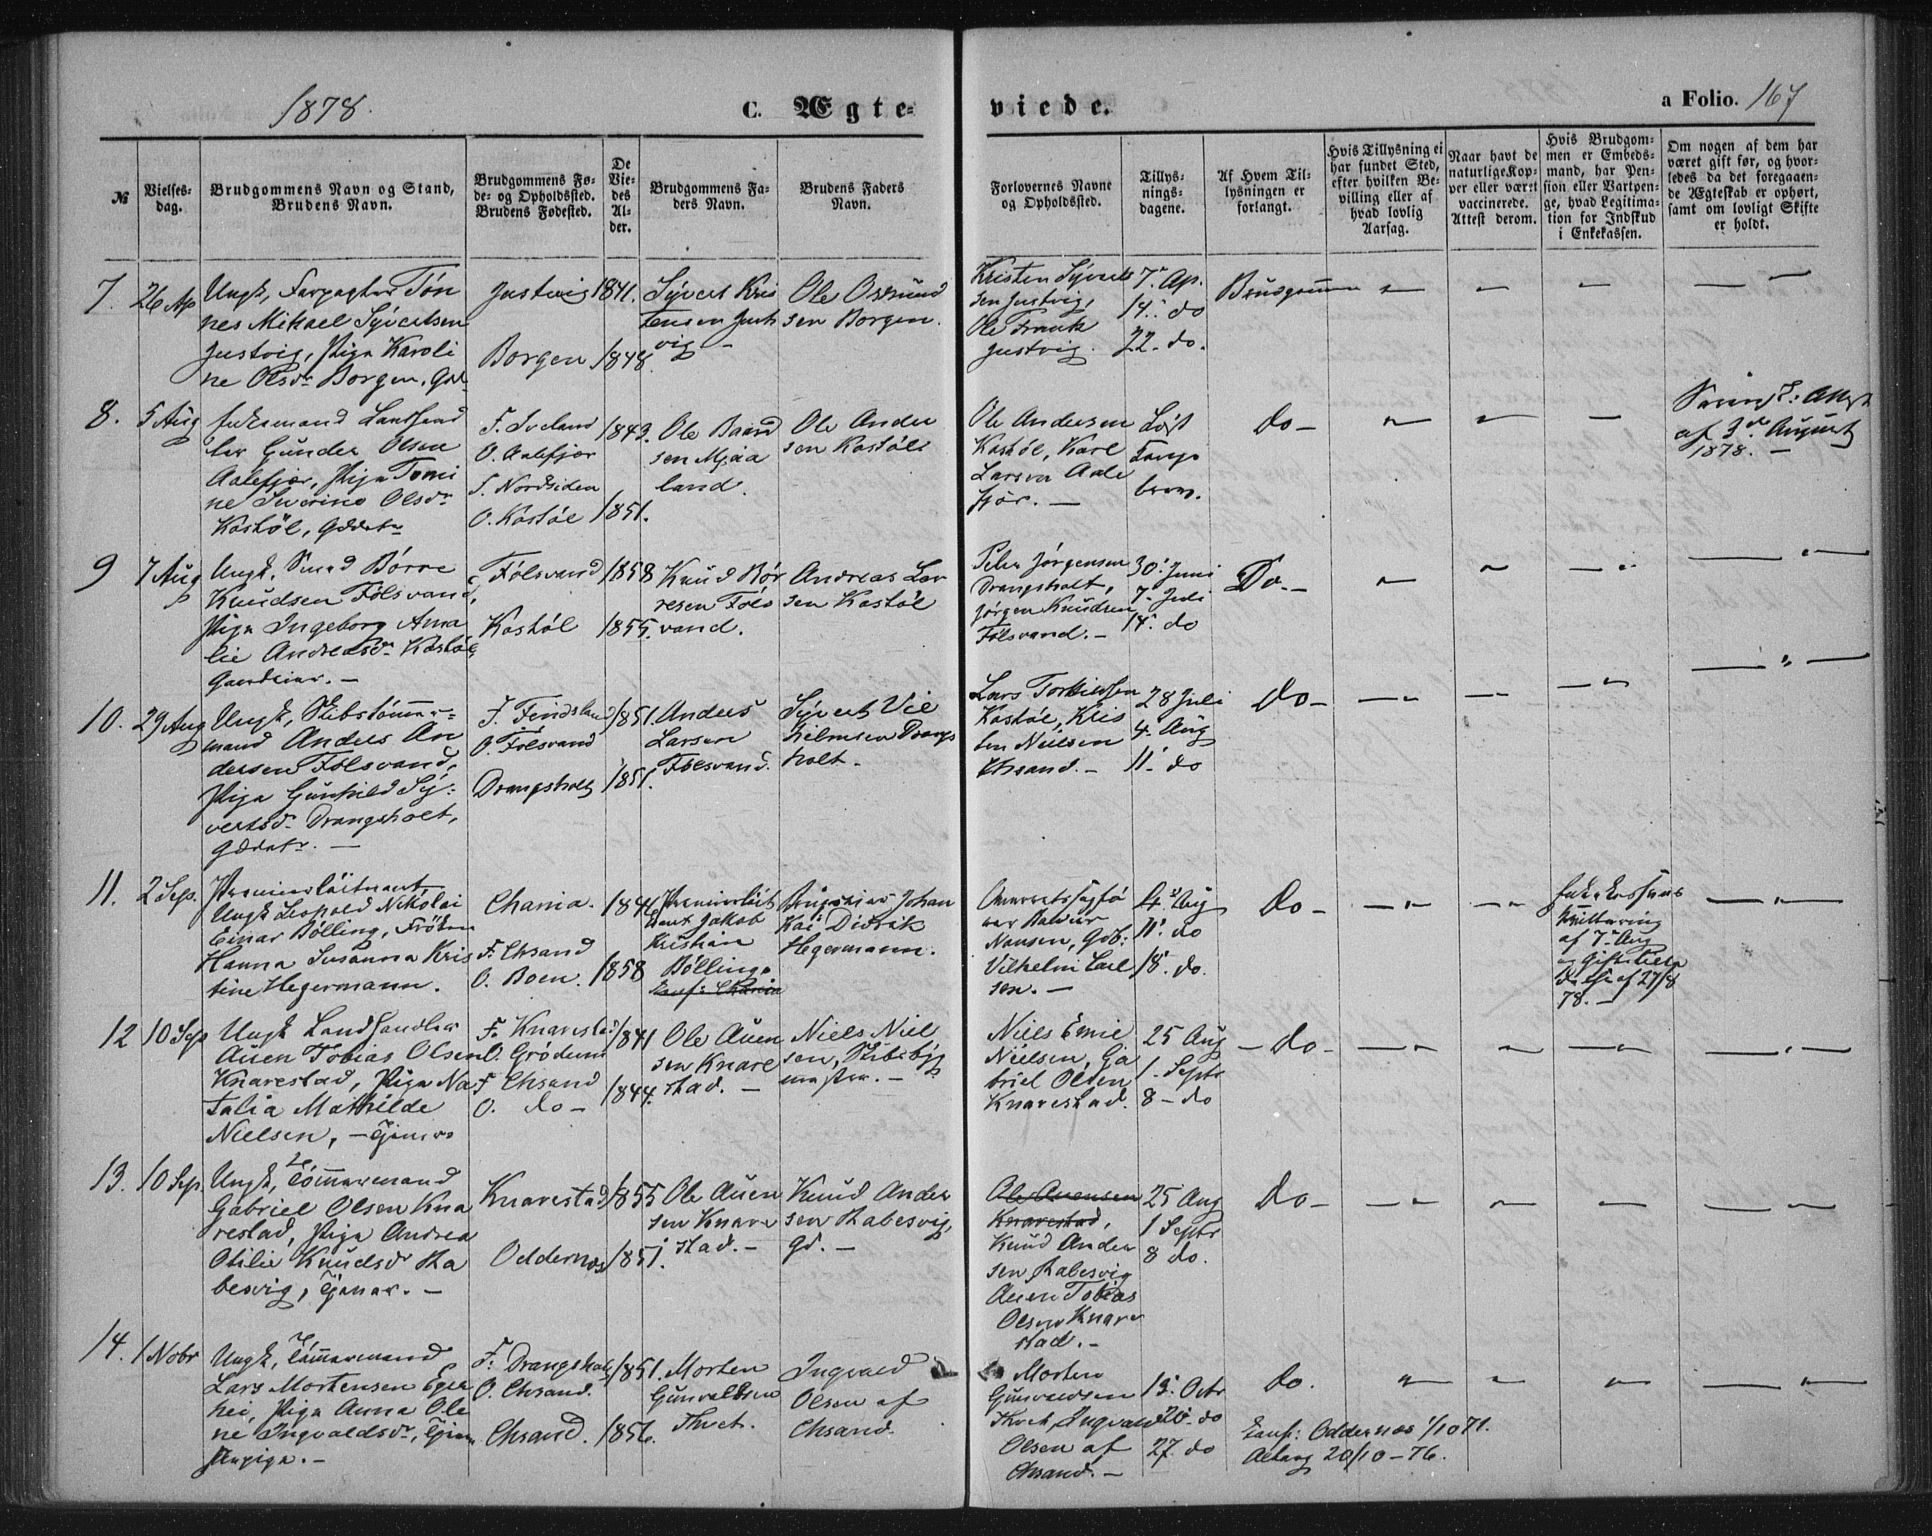 1878.
C. Ægte-
viede.
a Folio. 167
№
Vielses-
dag.
Brudgommens Navn og Stand,
Brudens Navn.
Brudgommens Fø-
de- og Opholdssted.
Brudens Fødested.
De
Vie-
des
Al-
der.
Brudgommens Fa-
ders Navn.
Brudens Faders
Navn.
Forlovernes Navne
og Opholdssted.
Tillys-
nings-
dagene.
Af Hvem Til-
lysningen er
forlangt.
Hvis Tillysning ei
har fundet Sted,
efter hvilken Be-
villing eller af
hvad lovlig
Aarsag.
Naar havt de
naturlige Kop-
per eller været
vaccinerede.
Attest derom.
Hvis Brudgom-
men er Embeds-
mand, har Pen-
sion eller Vartpen-
ge, hvad Legitima-
tion for Indskud
i Enkekassen.
Om nogen af dem har
været gift før, og hvor-
ledes da det foregaaen-
de Ægteskab er ophørt,
samt om lovligt Skifte
er holdt.
7. 26 Ap
Ungk, Forpagter Tön
nes Mikael Syvertsen
Justvig, Pige Karoli
ne Olsdr Borgen,
Justvig
Borgen
1841.
1848.
Syvert Kris
tensen Just
vig -
Ole Osmund
sen Borgen.
Kristen Syvert
sen Justvig,
Ole Frank
Justvig.
7. Ap.
14. do
22. do.
Brudgommen
8. 5 Aug
Enkemand Landhand
ler Gunder Olsen
Aalefjær, Pige Tomi
ne Severine Olsdr
Kostöl,
F. Iveland
O. Aalefjær
F. Nordsiden
O. Kostöl
1843.
1851.
Ole Baard
sen Mjaa
land.
Ole Ander
sen Kostöl
Ole Andersen
Kostöl, Karl
Larsen Aale
fjær. -
Löst
Konge
brev.
Do -
af 3die August
1878. -
9 7 Aug
Ungk. Börre
Knudsen Fölsvand,
Pige Ingeborg Ama
lie Andreasdr Kostöl
Fölsvand
Kostöl
1858
1855.
Knud Bör
resen Föls
vand.
Andreas Lar
sen Kostöl
Peter Jörgensen
Drangsholt,
Jörgen Knudsen
Fölsvand. -
30. Juni
7. Juli
14. do
Do. -
10. 29 Aug
Ungk, Skibstömmer-
mand Anders An
dersen Fölsvand,
Pige Gunhild Sy-
vertsd. Drangsholt,
F. Findsland
O. Fölsvand
Drangsholt
1851.
1851.
Anders
Larsen
Fölsvand.
Syvert Vil
helmsen Drangs
holt.
Lars Torkildsen
Kostöl, Kris
ten Nielsen
Chrsand. -
28 Juli
4. Aug
11. do
Do -
11. 2 Sep.
Premierlöitnant
Ungk Leopold Nikolai
Einar Bölling, Fröken
Hanna Susanna Kris
tine Hegermann.
Chania.
F. Chrsand
O. Boen.
1846
1858
Premierlöit
nant Jakob
Kristian
Bölling
Johan
Kai Didrik
Hegermann.
Overretssagfö
rer
Nansen,
Vilhelm Carl
sen. -
4. Aug
11. do
18. do.
Do -
af 7. Aug
af 27/8
78. -
12 10 Sep
Ungk Landhandler
Auen Tobias Olsen
Knarestad, Pige Na
talia Mathilde
Nielsen,
F. Knarestad
O. Grödum
F. Chrsand
O. do -
1841
1844.
Ole Auen
sen Knare
stad. -
Niels Niel
sen, Skibsbyg
mester. -
Niels Emil
Nielsen, Ga
briel Olsen
Knarestad.
25 Aug
1. Septr
8 - do
- do -
13. 10 Sep.
Ungk, Tömmermand
Gabriel Olsen Kna
restad, Pige Andrea
Otilie Knudsdr Ra
besvig,
Knarestad
Oddernes
1855
1851.
Ole Auen
sen Knare
stad. -
Knud Ander
sen Rabesvig,
Gd. -
Ole Auensen
Knarestad,
Knud Ander
sen Rabesvig
Auen Tobias
Olsen Knare
stad. -
25 Aug
1 Septr
8 do.
Do -
14. 1 Nobr
Ungk, Tömmermand
Lars Mortensen Egge
hei, Pige Anna Ole
ne Ingvaldsdr,
F. Drangsholt
O. Chrsand.
Chrsand.
1851.
1856.
Morten
Gunvaldsen
Tveit.
Ingvald
Olsen af
Chrsand.
Morten
Gunvaldsen
Tveit, Ingvald
Olsen af
Chrsand. -
13. Octr
20. do
27. do
Do.
Konf: Oddernes 1/10 71.
20/10 - 76.